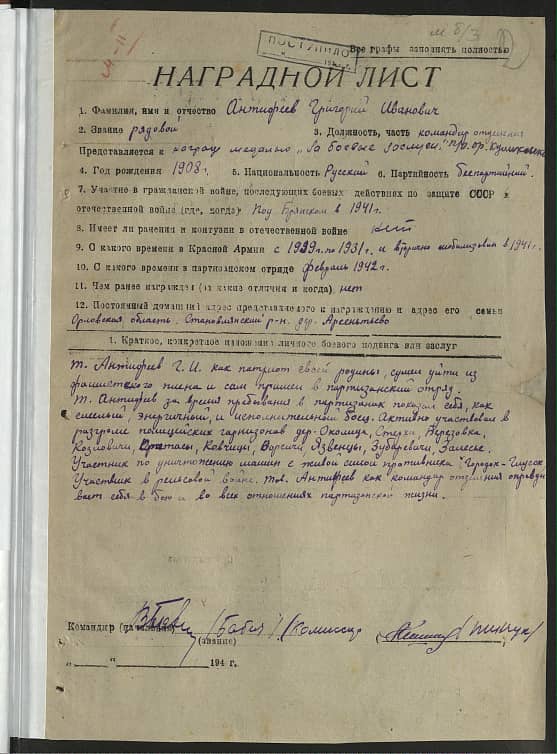 м б/з
ПОСТУПИЛО
Все графы заполнять полностью
НАГРАДНОЙ ЛИСТ
1. Фамилия, имя и отчество Антифеев Григорий Иванович
2. Звание рядовой 3. Должность, часть командир отделения
Представляется к награде медалью „За боевые заслуги"
4. Год рождения 1908г. 5. Национальность Русский 6. Партийность беспартийный.
7. Участие в гражданской войне, последующих боевых действиях по защите СССР и
отечественной войне (где, когда) Под Брянском в 1941г.
8. Имеет ли ранения и контузии в отечественной войне нет
9. С какого времени в Красной Армии с по 1931г. и вторично мобилизован в 1941г.
10. С какого времени в партизанском отряде февраль 1942г.
11. Чем ранее награжден (за какие отличия и когда) нет
12. Постоянный домашний адрес представляемого к награждению и адрес его семьи
Орловская область. Становлянский р-н. дер. Арсентьево
1. Краткое, конкретное изложение личного боевого подвига или заслуг
т. Антифеев Г.И. как патриот своей родины, сумел уйти из
фашистского плена и сам пришел в партизанский отряд.
т. Антифеев за время пребывания в партизанах показал себя, как
смелый, энергичный, и исполнительный боец. Активно участвовал в
разгроме полицейских гарнизонов дер. Околица, Березовка,
Козловичи, Протасы, Ковчицы, Язвенцы, Зубаревичи, Залесье.
Участник по уничтожению машин с живой силой противника "Городок-Глусск
Участник в рельсовой войне. тов. Антифеев как командир отделения оправды
вает себя в бою и во всех отношениях партизанской жизни.
Командир (начальник) /Бабич/ /Комиссар
(звание)
„___"________194 г.